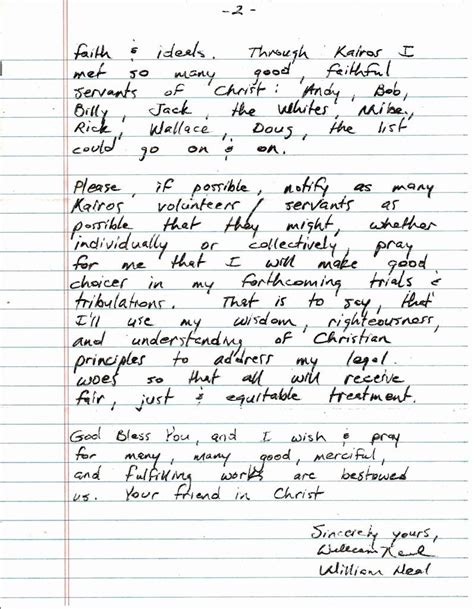 - 2 -
faith & ideals. Through Kairos I
met so many good, faithful
servants of Christ: Andy, Bob,
Billy, Jack, the Whites, Mike,
Rick, Wallace, Doug, the list
could go on & on.
Please, if possible, notify as many
Kairos volunteers/servants as
possible that they might, whether
individually or collectively, pray
for me that I will make good
choices in my forthcoming trials &
tribulations. That is to say, that
I'll use my wisdom, righteousness,
and understanding of Christian
principles to address my legal
woes so that all will receive
fair, just & equitable treatment.
God Bless You, and I wish & pray
for many, many good, merciful,
and fulfilling works are bestowed
us. Your friend in Christ
Sincerely yours,
William Neal
William Neal